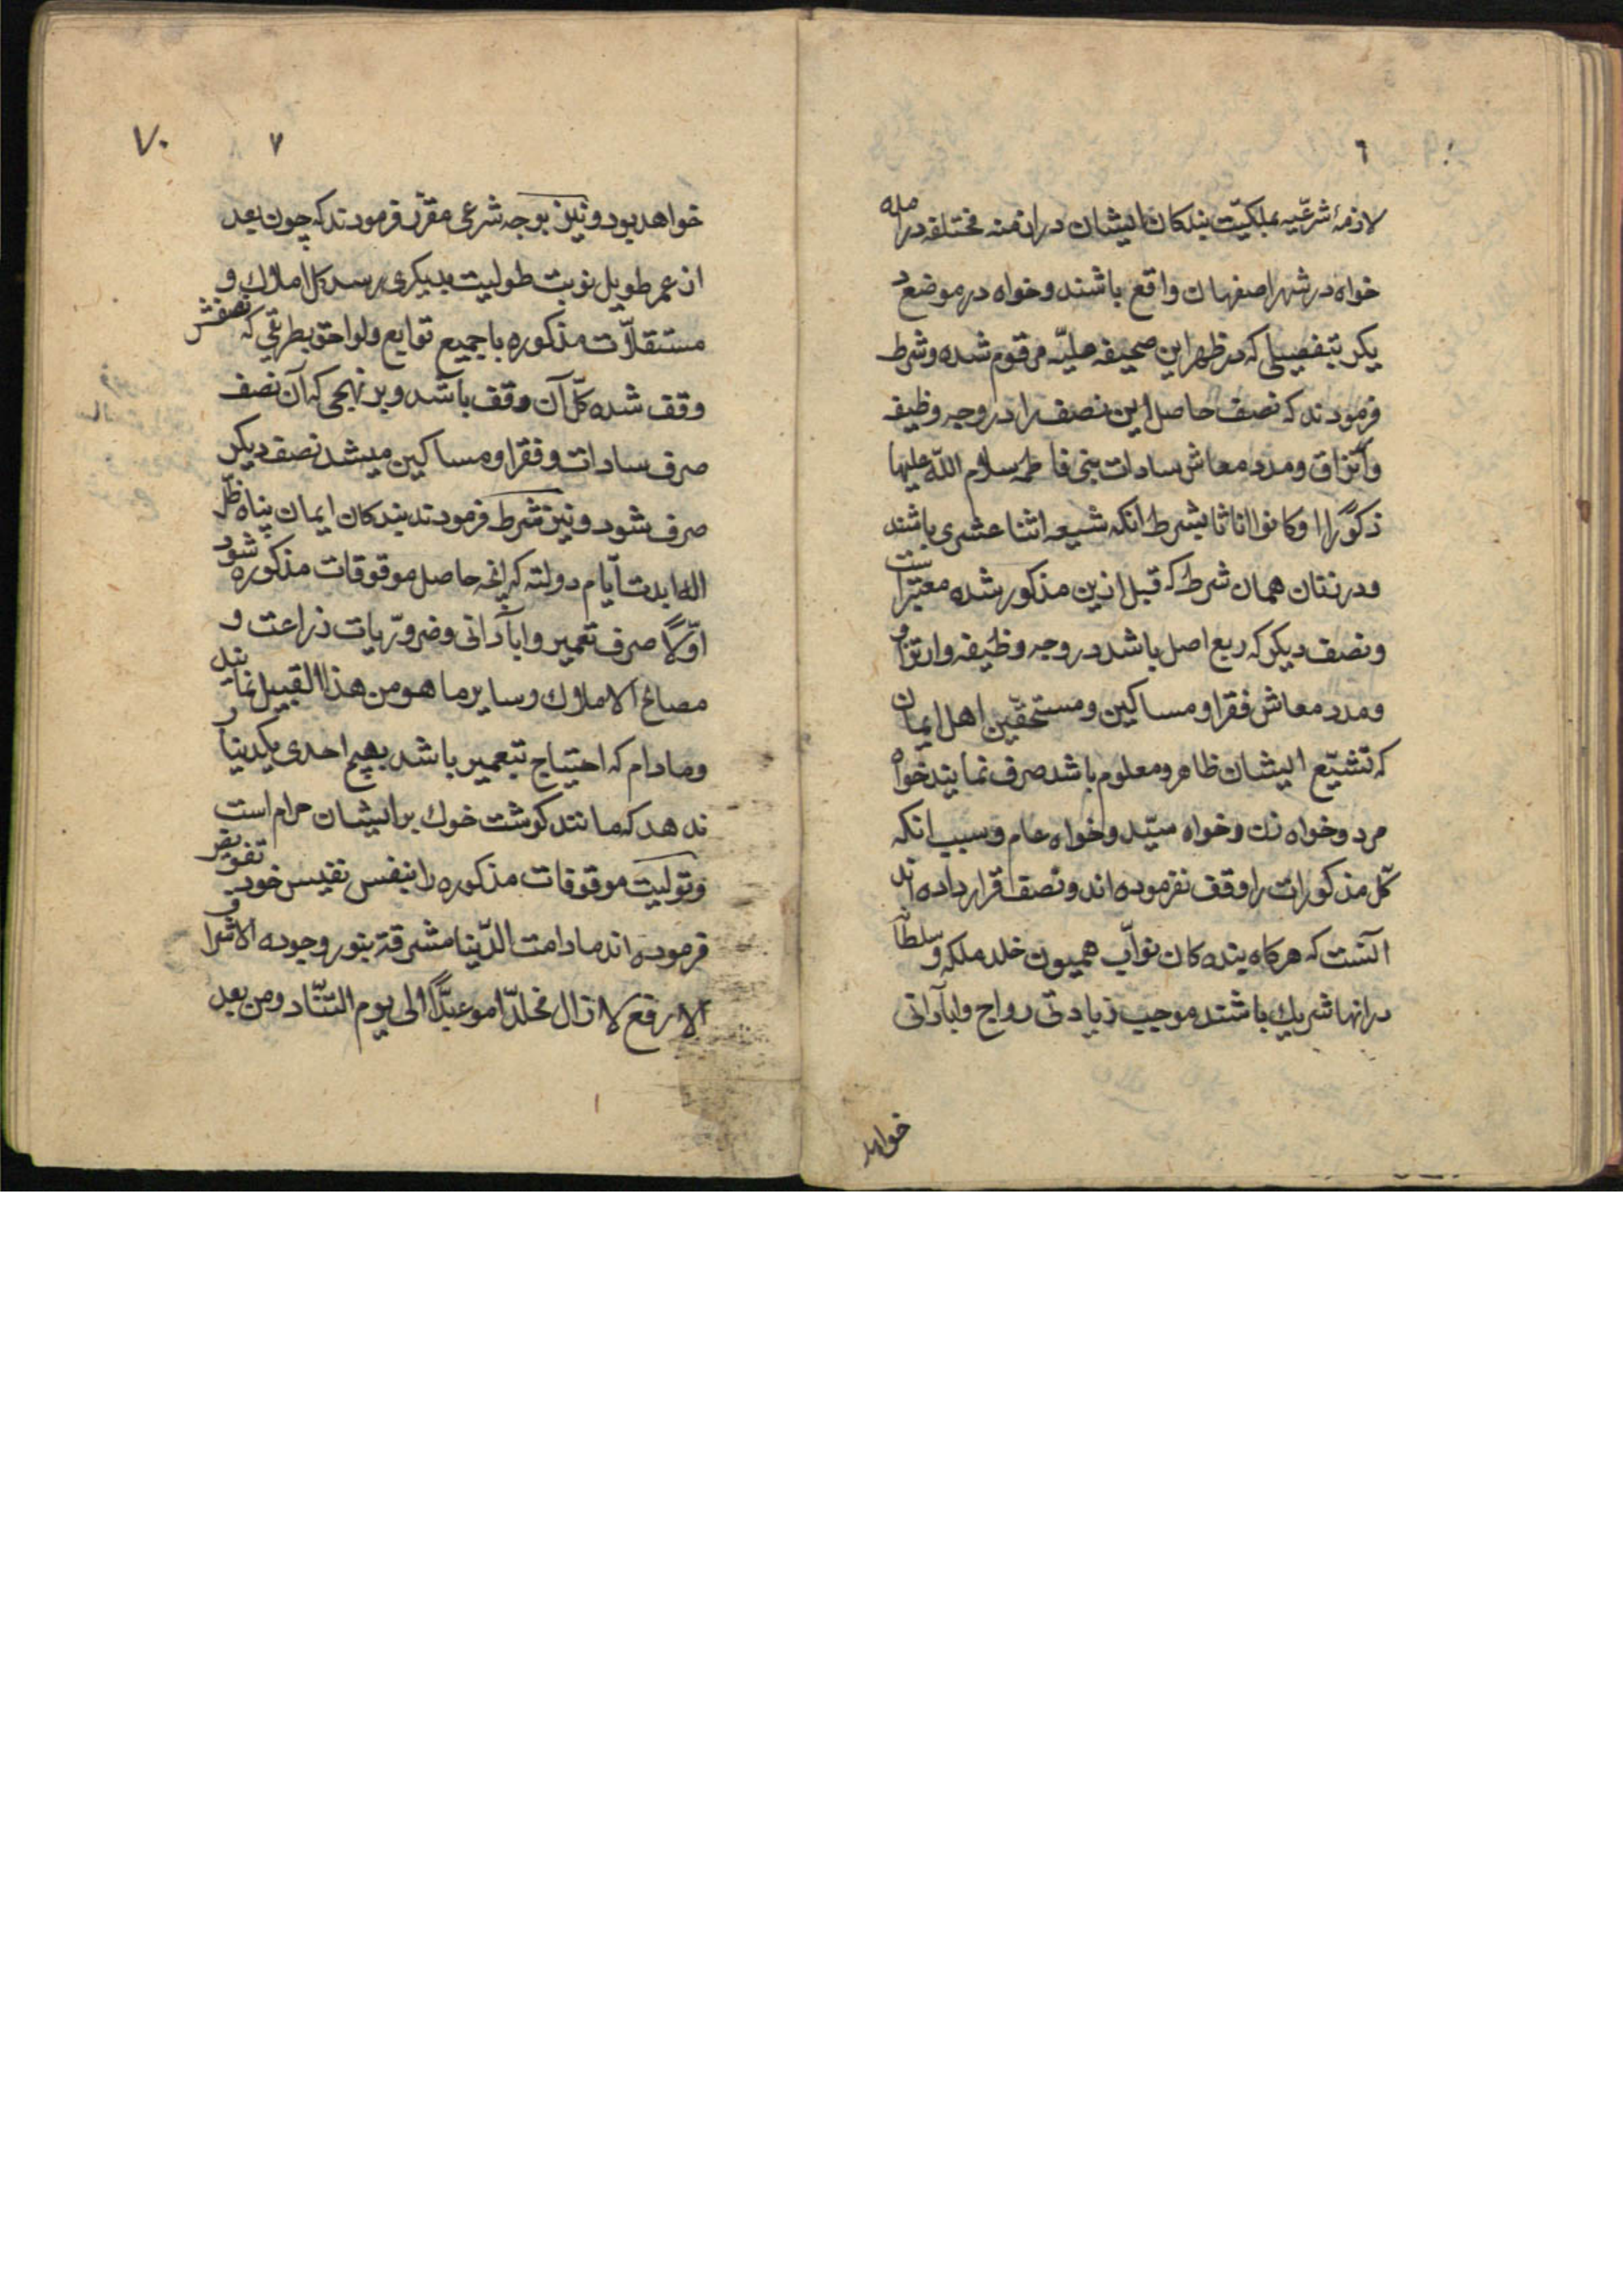 ٦
لازمهٔ شرعّیه بملکیّت بندکان ایشان در ازمنه مختلفه درامده
خواه در شهر اصفهان واقع باشند و خواه در موضع د
یکر بتفصیلی که در ظهر این صحیفه جلیّه مرقوم شده و شرط
فرمودند که نصف حاصل این نصف را در وجه وظیفه
وارتزاق و مدد معاش سادات بنی فاطمه سلام اللّه علیها
ذکورًا اوکانوا اناثا بشرط انکه شیعه اثنا عشری باشند
و در زنان همان شرط که قبل ازین مذکور شده معتبر است
و نصف دیکر که ربع اصل باشد در وجه وظیفه وارتزاق
و مدد معاش فقرا و مساکین و مستحقّین اهل ایمان
که تشیّع ایشان ظاهر و معلوم باشد صرف نمایند خواه
مرد و خواه زن و خواه سیّد و خواه عام و سبب انکه
کّل مذکورات را وقف نفرموده اند و نصف قرار داده اند
آنست که هرکاه بنده کان نوّاب همیون خلد ملکه و سلطانه
درانها شریك باشند موجب زیادتی رواج و ابآدانی
خواهد
٧ ٧٠
خواهد بود و نیز بوجه شرعی مقرّر فرمودند که چون بعد
از عمر طویل نوبت طولیت بدیکری رسد کل املاك و
مستقلاّت مذکوره با جمیع توابع و لواحق بطریقی که نصفش
وقف شده کّل آن وقف باشد و بر نهجی که آن نصف
صرف سادات و فقرا و مساکین میشد نصف دیکر
صرف شود و نیز شرط فرمودند بندکان ایمان پناه ظّل
اله ابدت ایّام دولته که انچه حاصل موقوفات مذکوره شود
اوّلاً صرف تعمیر و ابآدانی و ضروریات زراعت و
مصالح الاملاك و سایر ما هو من هذا القبیل نمایند
و مادام که احتیاج بتعمیر باشد بهیچ احدی یکدینار
ندهد که مانند کوشت خوك بر ایشان حرام است
و تولیت موقوفات مذکوره را بنفس نفیس خود تفویض
فرموده اند مادامت الدّنیا مشرقة بنور وجوده الاشرف
الارفع لازال مخلدّا موءبدًا الی یوم التنّاد و من بعد